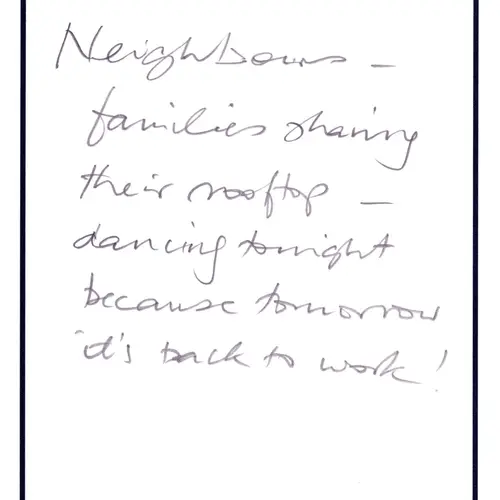 Neighbours –
families sharing
their rooftop –
dancing tonight
because tomorrow
it's back to work!